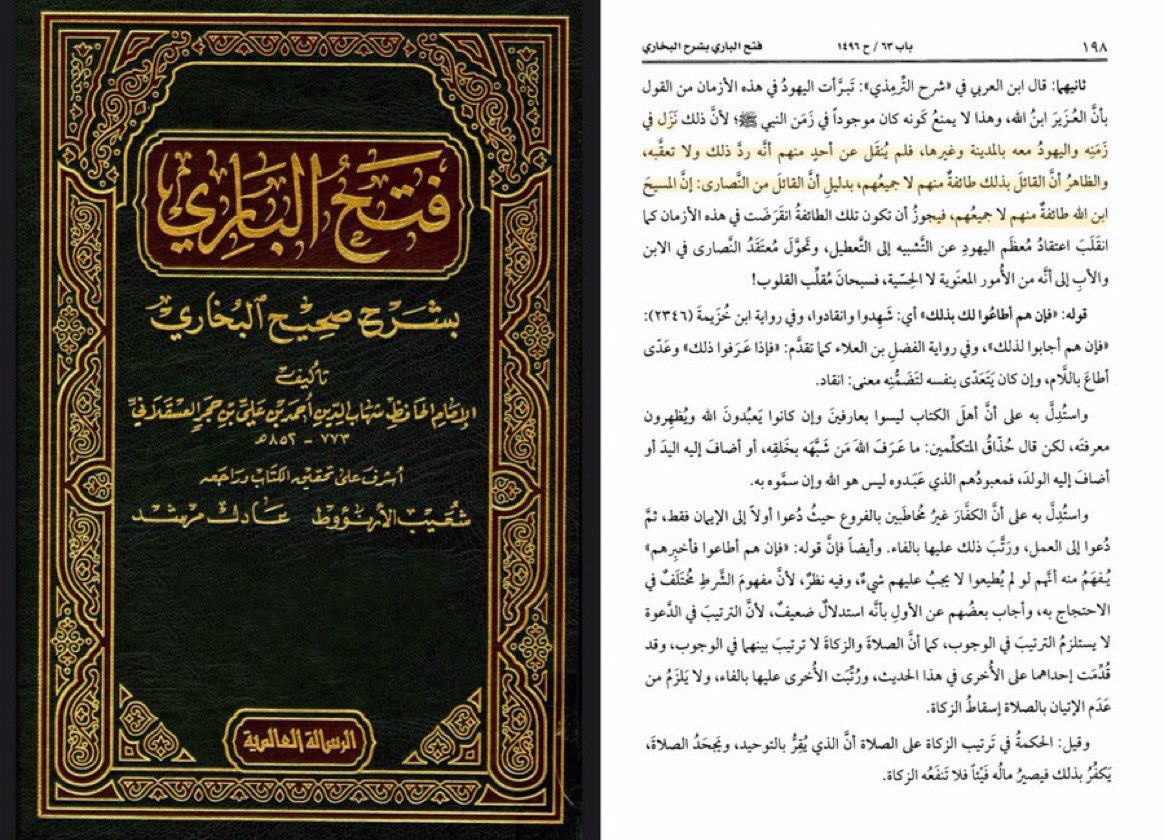 فتح الباري
بشرح صحيح البخاري
تأليف
الإمام الحافظ شهاب الدين أحمد بن علي بن حجر العسقلاني
٧٧٣ - ٨٥٢ هـ
أشرف على تحقيق الكتاب وراجعه
شعيب الأرنؤوط عادل مرشد
الرسالة العالمية
١٩٨ باب ٦٣ / ح ١٤٩٦ فتح الباري بشرح البخاري
ثانيهما: قال ابن العربي في «شرح التِّرمِذي»: تَبرَّأت اليهودُ في هذه الأزمان من القول
بأنَّ العُزَيرَ ابنُ الله، وهذا لا يمنعُ كَونه كان موجوداً في زَمَن النبي ﷺ؛ لأنَّ ذلك نَزَل في
زَمَنِه واليهودُ معه بالمدينة وغيرها، فلم يُنقَل عن أحدٍ منهم أنَّه ردَّ ذلك ولا تعقَّبه،
والظاهرُ أنَّ القائلَ بذلك طائفةٌ منهم لا جميعُهم، بدليلِ أنَّ القائلَ من النَّصارى: إنَّ المسيحَ
ابن الله طائفةٌ منهم لا جميعُهم، فيجوزُ أن تكون تلك الطائفةُ انقَرَضَت في هذه الأزمان كما
انقَلَبَ اعتقادُ مُعظَم اليهودِ عن التَّشبيه إلى التَّعطيل، وتَحوَّلَ مُعتَقَدُ النَّصارى في الابن
والأبِ إلى أنَّه من الأُمور المعنَوية لا الحِسّية، فسبحانَ مُقلِّب القلوب!
قوله: «فإن هم أطاعُوا لك بذلك» أي: شَهِدوا وانقادوا، وفي رواية ابن خُزَيمةَ (٢٣٤٦):
«فإن هم أجابوا لذلك»، وفي رواية الفضلِ بن العلاء كما تقدَّم: «فإذا عَرَفوا ذلك» وعَدّى
أطاعَ باللَّام، وإن كان يَتَعَدّى بنفسه لتَضَمُّنِه معنى: انقاد.
واستُدِلَّ به على أنَّ أهلَ الكتاب ليسوا بعارفينَ وإن كانوا يَعبُدونَ الله ويُظهِرون
معرفتَه، لكن قال حُذّاقُ المتكلِّمين: ما عَرَفَ اللهَ مَن شَبَّهَه بخَلقِه، أو أضافَ إليه اليدَ أو
أضافَ إليه الولدَ، فمعبودُهم الذي عَبَدوه ليس هو الله وإن سمَّوه به.
واستُدِلَّ به على أنَّ الكفَّارَ غيرُ مُخاطَبين بالفروع حيثُ دُعوا أولاً إلى الإيمان فقط، ثمَّ
دُعوا إلى العمل، ورَتَّبَ ذلك عليها بالفاء. وأيضاً فإنَّ قوله: «فإن هم أطاعوا فأخبِرهم»
يُفهَمُ منه أنَّهم لو لم يُطيعوا لا يجبُ عليهم شيءٌ، وفيه نظرٌ، لأنَّ مفهومَ الشَّرطِ مُختَلَفٌ في
الاحتجاج به، وأجاب بعضُهم عن الأولِ بأنَّه استدلالٌ ضعيفٌ، لأنَّ الترتيبَ في الدَّعوة
لا يستلزمُ الترتيبَ في الوجوب، كما أنَّ الصلاةَ والزكاةَ لا ترتيبَ بينهما في الوجوب، وقد
قُدِّمَت إحداهما على الأُخرى في هذا الحديث، ورُتِّبَت الأُخرى عليها بالفاء، ولا يَلزَمُ من
عَدَم الإتيان بالصلاة إسقاطُ الزكاة.
وقيل: الحكمةُ في تَرتيب الزكاة على الصلاة أنَّ الذي يُقِرُّ بالتوحيد، ويَجحَدُ الصلاةَ،
يَكفُرُ بذلك فيصيرُ مالُه فَيْئاً فلا تَنفَعُه الزكاة.